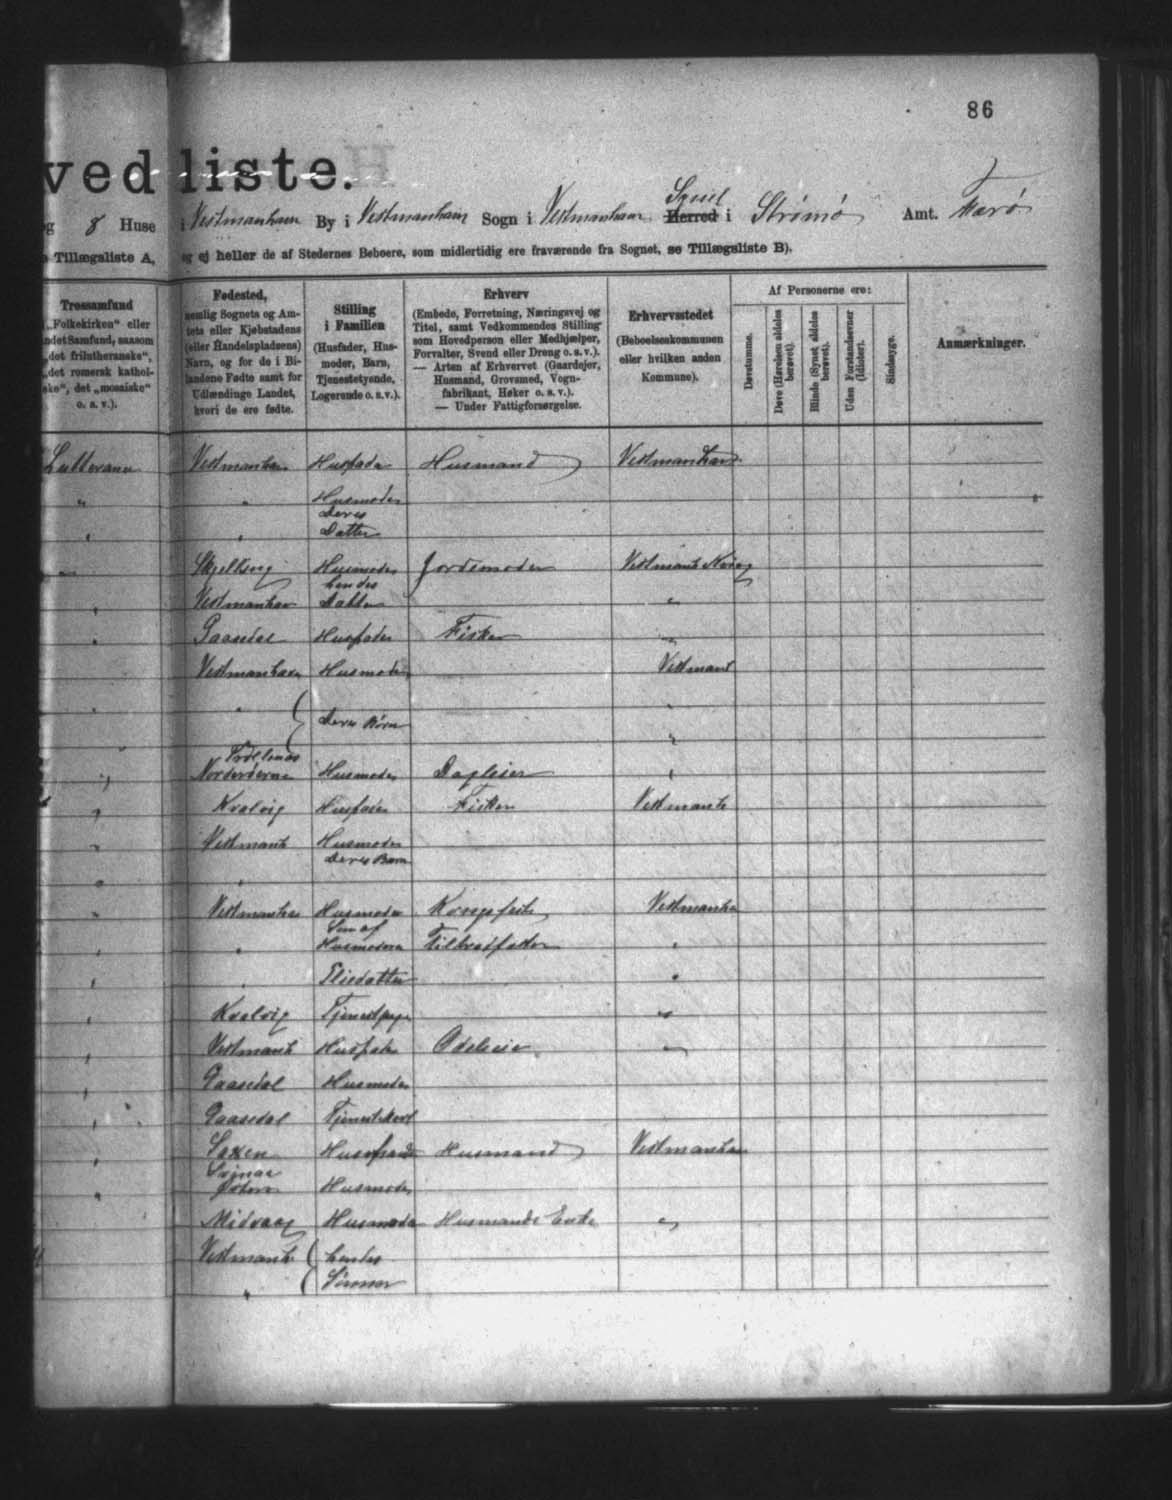 86
ved liste.
og 8 Huse i Vestmanhavn By i Vestmanhavn Sogn i Vestmanhavn Herred Syssel i Strømø Amt. Færø
Tillægsliste A, og ej heller de af Stedernes Beboere, som midlertidig ere fraværende fra Sognet, se Tillægsliste B).
Trossamfund
„Folkekirken“ eller
andet Samfund, saasom
„det frilutheranske“,
„det romersk kathol-
ske“, det „mosaiske“
o. s. v.).
Fødested,
nemlig Sognets og Am-
tets eller Kjøbstadens
(eller Handelspladsens)
Navn, og for de i Bi-
landene Fødte samt for
Udlændinge Landet,
hvori de ere fødte.
Stilling
i Familien
(Husfader, Hus-
moder, Barn,
Tjenestetyende,
Logerende o. s. v.).
Erhverv
(Embede, Forretning, Næringsvej og
Titel, samt Vedkommendes Stilling
som Hovedperson eller Medhjælper,
Forvalter, Svend eller Dreng o. s. v.).
— Arten af Erhvervet (Gaardejer,
Husmand, Grovsmed, Vogn-
fabrikant, Høker o. s. v.).
— Under Fattigforsørgelse.
Erhvervsstedet
(Beboelseskommunen
eller hvilken anden
Kommune).
Af Personerne ere:
Døvstumme.
Døve (Hørelsen aldeles
berøvet).
Blinde (Synet aldeles
berøvet).
Uden Forstandsevner
(Idioter).
Sindssyge.
Anmærkninger.
Lutteraner Vestmanhavn Husfader Husmand Vestmanhavn
" " Husmoder
" " Deres Datter
" Husmoder Jordemoder
" Vestmanhavn hendes Datter "
" Gaasedal Husfader Fisker "
Vestmanhavn Husmoder Vestmanh
" " Deres Børn "
"
" Trøllenæs Norderøerne Husmoder Daglejer "
" Kvalvig Husfader Fisker Vestmanh
" Vestmanh Husmoder
" " Deres Barn
" Vestmanhavn Husmoder Vestmanhavn
" " Søn af Husmoderen "
" " Pleiedatter "
" Kvalvig "
" Vestmanh Husfader "
" Gaasedal Husmoder
" Gaasedal
" Saxen Husfader Husmand Vestmanhavn
" Husmoder
Midvaag Husmoder Husmands Enke "
Vestmanh hendes
" Sønner